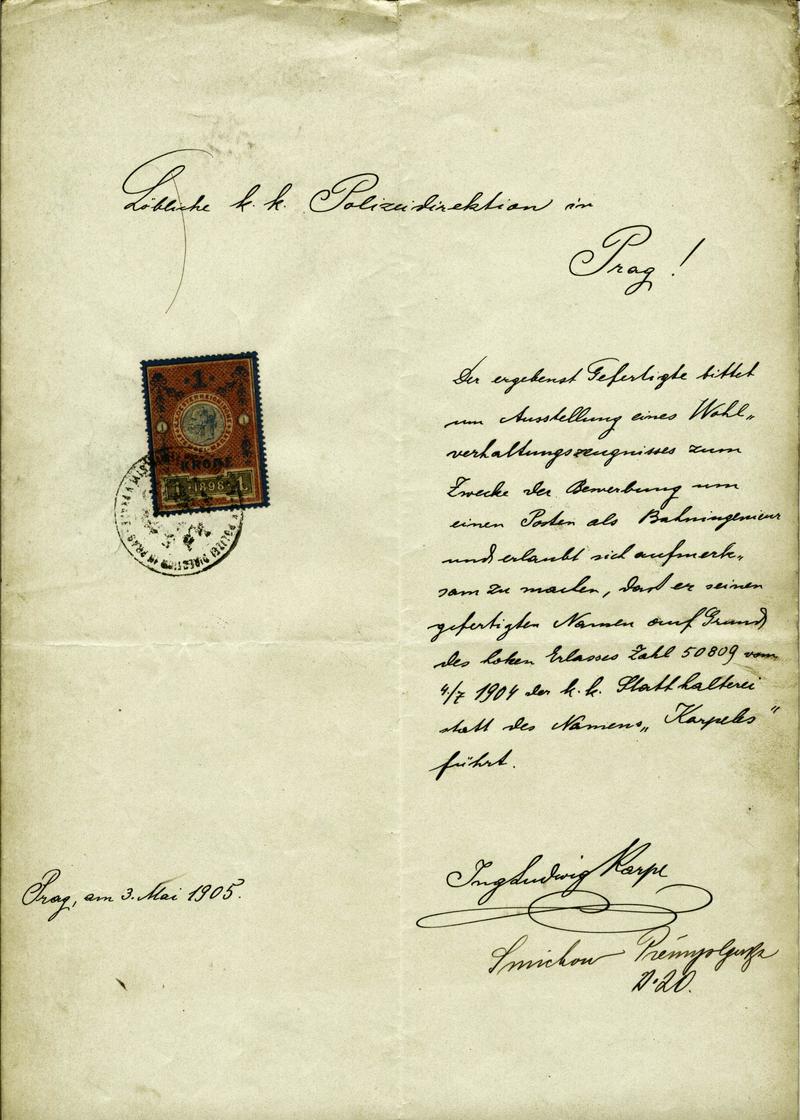 Löbliche k. k. Polizeidirektion in
Prag!
1
KRONE
1 · 1898 · 1
POLIZEI DIRECTION IN PRAG
Der ergebenst Gefertigte bittet
um Ausstellung eines Wohl„
verhaltungszeugnisses zum
Zwecke der Bewerbung um
einen Posten als Bahningenieur
und erlaubt sich aufmerk„
sam zu machen, dass er seinen
gefertigten Namen auf Grund
des hohen Erlasses Zahl 50809 vom
4/7 1904 der k. k. Statthalterei
statt des Namens „Karpeles"
führt.
Prag, am 3. Mai 1905.
Ing Ludwig Karpe
Smichow
20.